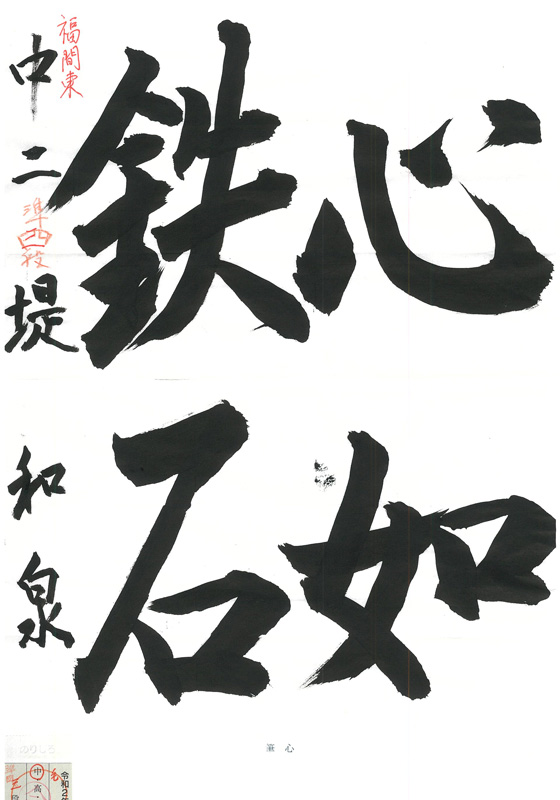 心如
鉄石
福間東
中二 堤 和泉
準四段
心
のりしろ
令和2年
中 高・